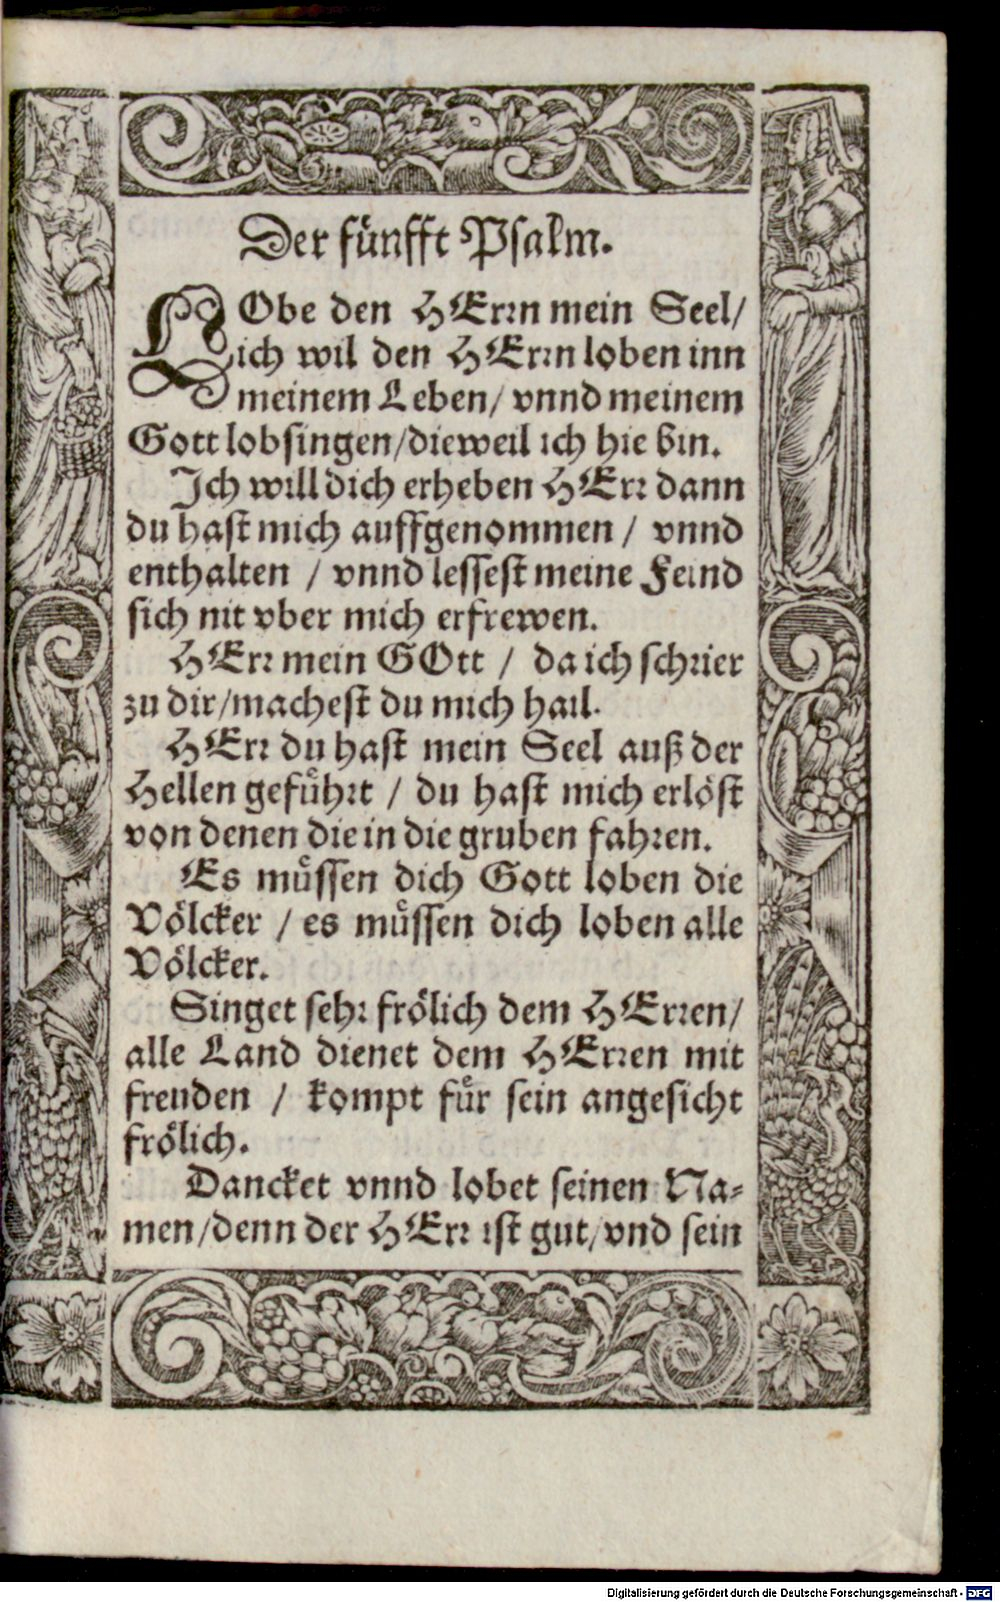 Der fünfft Psalm.
LObe den HErrn mein Seel/
ich wil den HErrn loben inn
meinem Leben/ vnnd meinem
Gott lobsingen/dieweil ich hie bin.
Ich will dich erheben HErr dann
du hast mich auffgenommen / vnnd
enthalten / vnnd lessest meine Feind
sich nit vber mich erfrewen.
HErr mein GOtt / da ich schrier
zu dir/machest du mich hail.
HErr du hast mein Seel auß der
Hellen geführt / du hast mich erlöst
von denen die in die gruben fahren.
Es müssen dich Gott loben die
Völcker / es müssen dich loben alle
Völcker.
Singet sehr frölich dem HErren/
alle Land dienet dem HErren mit
freuden / kompt für sein angesicht
frölich.
Dancket vnnd lobet seinen Na-
men/denn der HErr ist gut/vnd sein
Digitalisierung gefördert durch die Deutsche Forschungsgemeinschaft - DFG